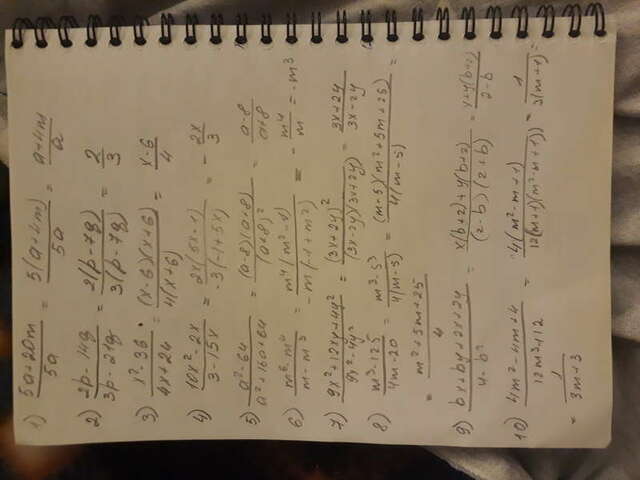 1) (5a+20m)/(5a) = (5(a+4m))/(5a) = (a+4m)/a
2) (2p-14g)/(3p-21g) = (2(p-7g))/(3(p-7g)) = 2/3
3) (x²-36)/(4x+24) = ((x-6)(x+6))/(4(x+6)) = (x-6)/4
4) (10x²-2x)/(3-15x) = (2x(5x-1))/(-3(-1+5x)) = -2x/3
5) (a²-64)/(a²+16a+64) = ((a-8)(a+8))/((a+8)²) = (a-8)/(a+8)
6) (m⁶-m⁴)/(m-m³) = (m⁴(m²-1))/(-m(-1+m²)) = -m⁴/m = -m³
7) (9x²+12xy+4y²)/(9x²-4y²) = ((3x+2y)²)/((3x-2y)(3x+2y)) = (3x+2y)/(3x-2y)
8) (m³-125)/(4m-20) = (m³-5³)/(4(m-5)) = ((m-5)(m²+5m+25))/(4(m-5)) =
= (m²+5m+25)/4
9) (bx+by+2x+2y)/(4-b²) = (x(b+2)+y(b+2))/((2-b)(2+b)) = (x+y(b+2))/(2-b)
10) (4m²-4m+4)/(12m³+12) = (4(m²-m+1))/(12(m+1)(m²-m+1)) = 1/(3(m+1)) =
= 1/(3m+3)